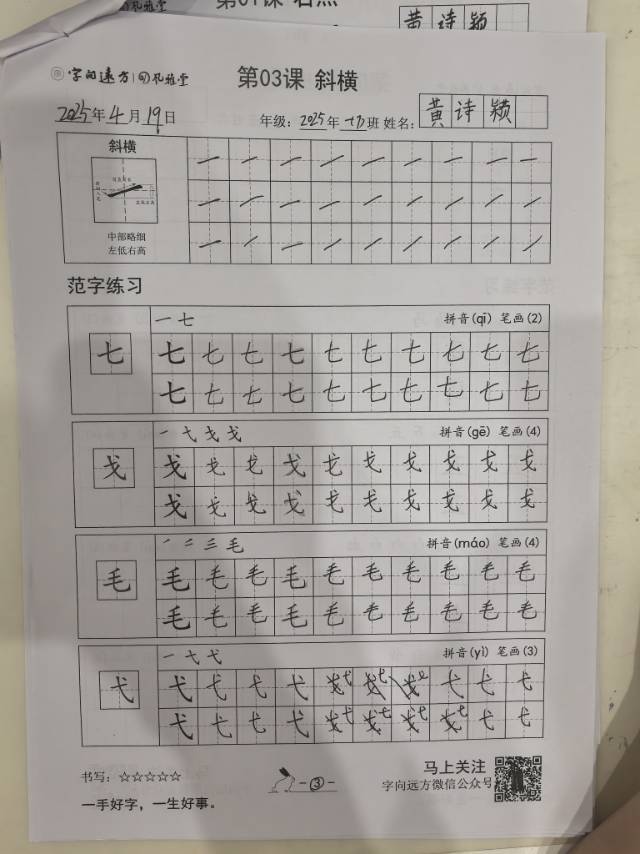 第01课 右点
黄诗颖
字向远方 孔雅堂
第03课 斜横
2025年4月19日
年级：2025年一(7)班 姓名：黄诗颖
斜横
中部略细
左低右高
范字练习
一 七
拼音(qī) 笔画(2)
七 七 七 七 七 七 七 七 七 七 七
七 七 七 七 七 七 七 七 七 七
拼音(gē) 笔画(4)
戈 戈 戈 戈 戈 戈 戈 戈 戈 戈 戈
戈 戈 戈 戈 戈 戈 戈 戈 戈 戈
一 二 三 毛
拼音(máo) 笔画(4)
毛 毛 毛 毛 毛 毛 毛 毛 毛 毛 毛
毛 毛 毛 毛 毛 毛 毛 毛 毛 毛
一 七 弋
拼音(yì) 笔画(3)
弋 弋 弋 弋 弋 弋 弋 弋
弋 弋 弋 弋 弋 弋
书写：☆☆☆☆☆
一手好字，一生好事。
-③-
马上关注
字向远方微信公众号